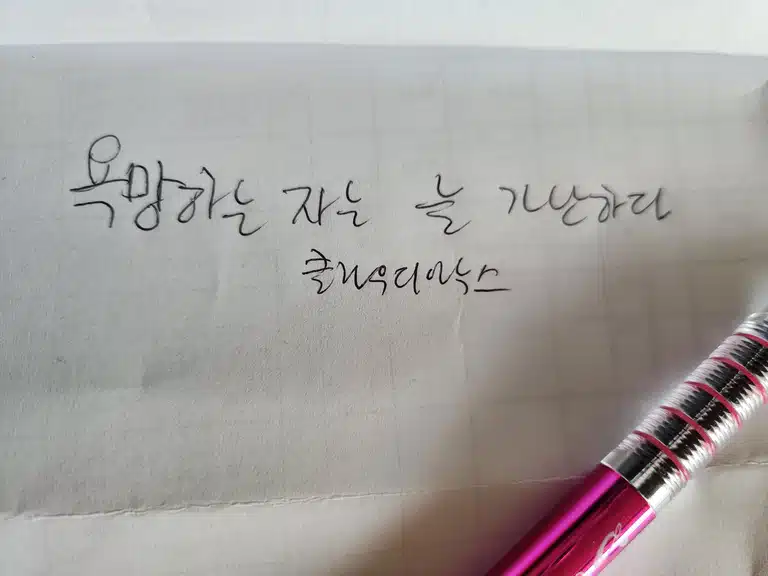 욕망하는 자는 늘 가난하다
클라우디아누스